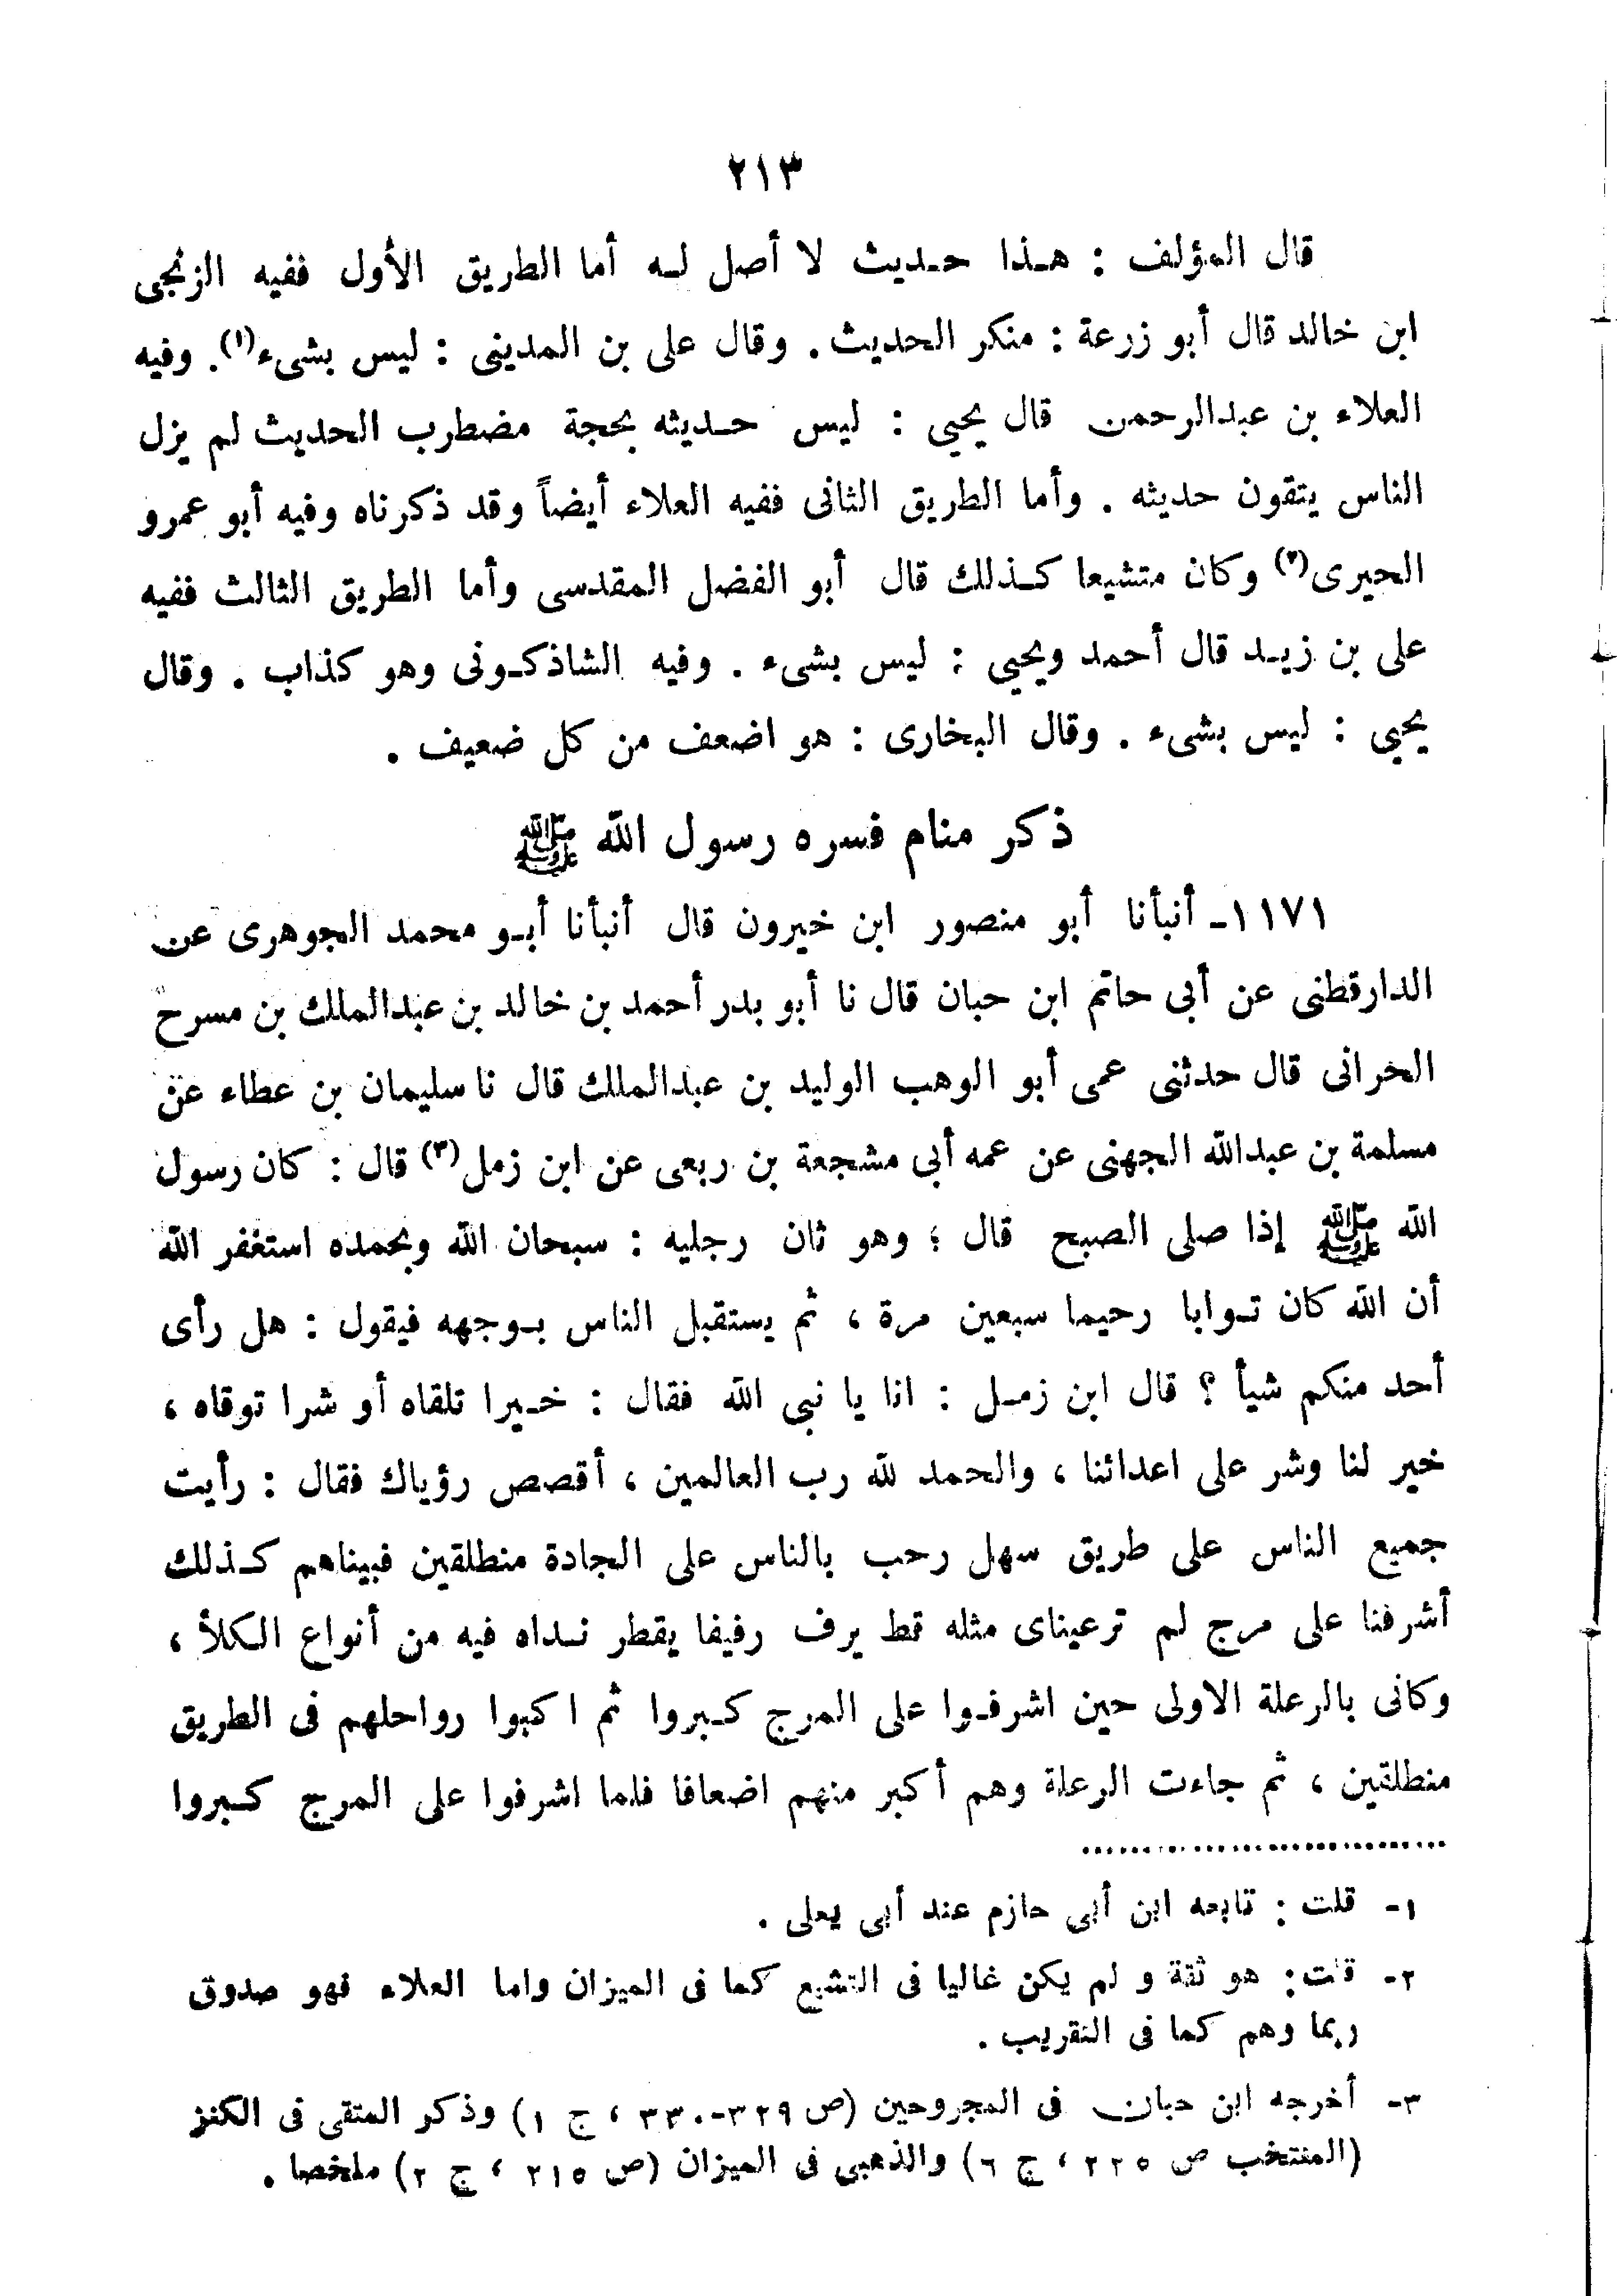 ٢١٣
قال المؤلف : هـذا حـديث لا أصل لـه أما الطريق الأول ففيه الزنجى
ابن خالد قال أبو زرعة : منكر الحديث . وقال على بن المدينى : ليس بشىء(١). وفيه
العلاء بن عبدالرحمن قال يحيى : ليس حـديثه بحجة مضطرب الحديث لم يزل
الناس يتقون حديثه . وأما الطريق الثانى ففيه العلاء أيضاً وقد ذكرناه وفيه أبو عمرو
الحيرى(٢) وكان متشيعا كـذلك قال أبو الفضل المقدسى وأما الطريق الثالث ففيه
على بن زيـد قال أحمد ويحيى : ليس بشىء . وفيه الشاذكـونى وهو كذاب . وقال
يحيى : ليس بشىء . وقال البخارى : هو اضعف من كل ضعيف .
ذكر منام فسره رسول الله ﷺ
١١٧١ـ أنبأنا أبو منصور ابن خيرون قال أنبأنا أبـو محمد الجوهرى عن
الدارقطنى عن أبى حاتم ابن حبان قال نا أبو بدر أحمد بن خالد بن عبدالملك بن مسرح
الحرانى قال حدثنى عمى أبو الوهب الوليد بن عبدالملك قال نا سليمان بن عطاء عن
مسلمة بن عبدالله الجهنى عن عمه أبى مشجعة بن ربعى عن ابن زمل(٣) قال : كان رسول
الله ﷺ إذا صلى الصبح قال ؛ وهو ثان رجليه : سبحان الله وبحمده استغفر الله
أن الله كان تـوابا رحيما سبعين مرة ، ثم يستقبل الناس بـوجهه فيقول : هل رأى
أحد منكم شيأ ؟ قال ابن زمـل : انا يا نبى الله فقال : خـيرا تلقاه أو شرا توقاه ،
خير لنا وشر على اعدائنا ، والحمد لله رب العالمين ، أقصص رؤياك فقال : رأيت
جميع الناس على طريق سهل رحب بالناس على الجادة منطلقين فبيناهم كـذلك
أشرفنا على مرج لم ترعيناى مثله قط يرف رفيفا يقطر نـداه فيه من أنواع الكلأ ،
وكانى بالرعلة الاولى حين اشرفـوا على المرج كـبروا ثم اكبوا رواحلهم فى الطريق
منطلقين ، ثم جاءت الرعلة وهم أكبر منهم اضعافا فلما اشرفوا على المرج كـبروا
١- قلت : تابعه ابن أبى حازم عند أبى يعلى .
٢- قلت: هو ثقة و لم يكن غاليا فى التشيع كما فى الميزان واما العلاء فهو صدوق
ربما وهم كما فى التقريب .
٣- أخرجه ابن حبان فى المجروحين (ص ٣٢٩-٣٣٠ ، ج ١) وذكر المتقى فى الكنز
(المنتخب ص ٢٢٥ ، ج ٦) والذهبى فى الميزان (ص ٢١٥ ، ج ٢) ملخصا .